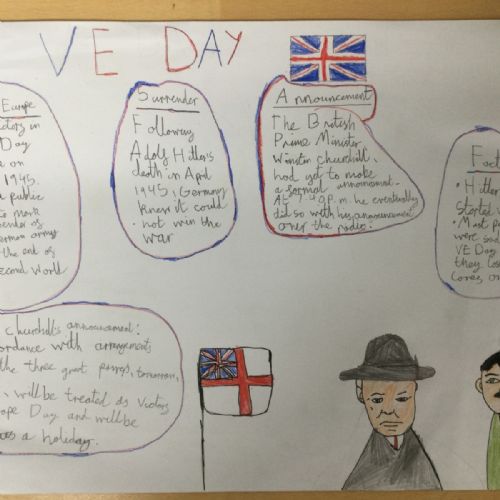 VE DAY
Europe
ctory in
Day
e on
1945.
a public
to mark
ender of
erman army
the end of
Second World
Surrender
Following
Adolf Hitler's
death in April
1945, Germany
knew it could
not win the
war
Announcement
The British
Prime Minister
Winston Churchill,
had yet to make
a formal announcement.
At 7:40 p.m. he eventually
did so with his announcement
over the radio.
Fact
• Hitler
started w
• Most p
were sa
VE Day
they los
loves on
Churchill's announcement:
ordance with arrangements
the three great powers, tomorrow,
, will be treated as Victory
ope Day and will be
as a holiday.